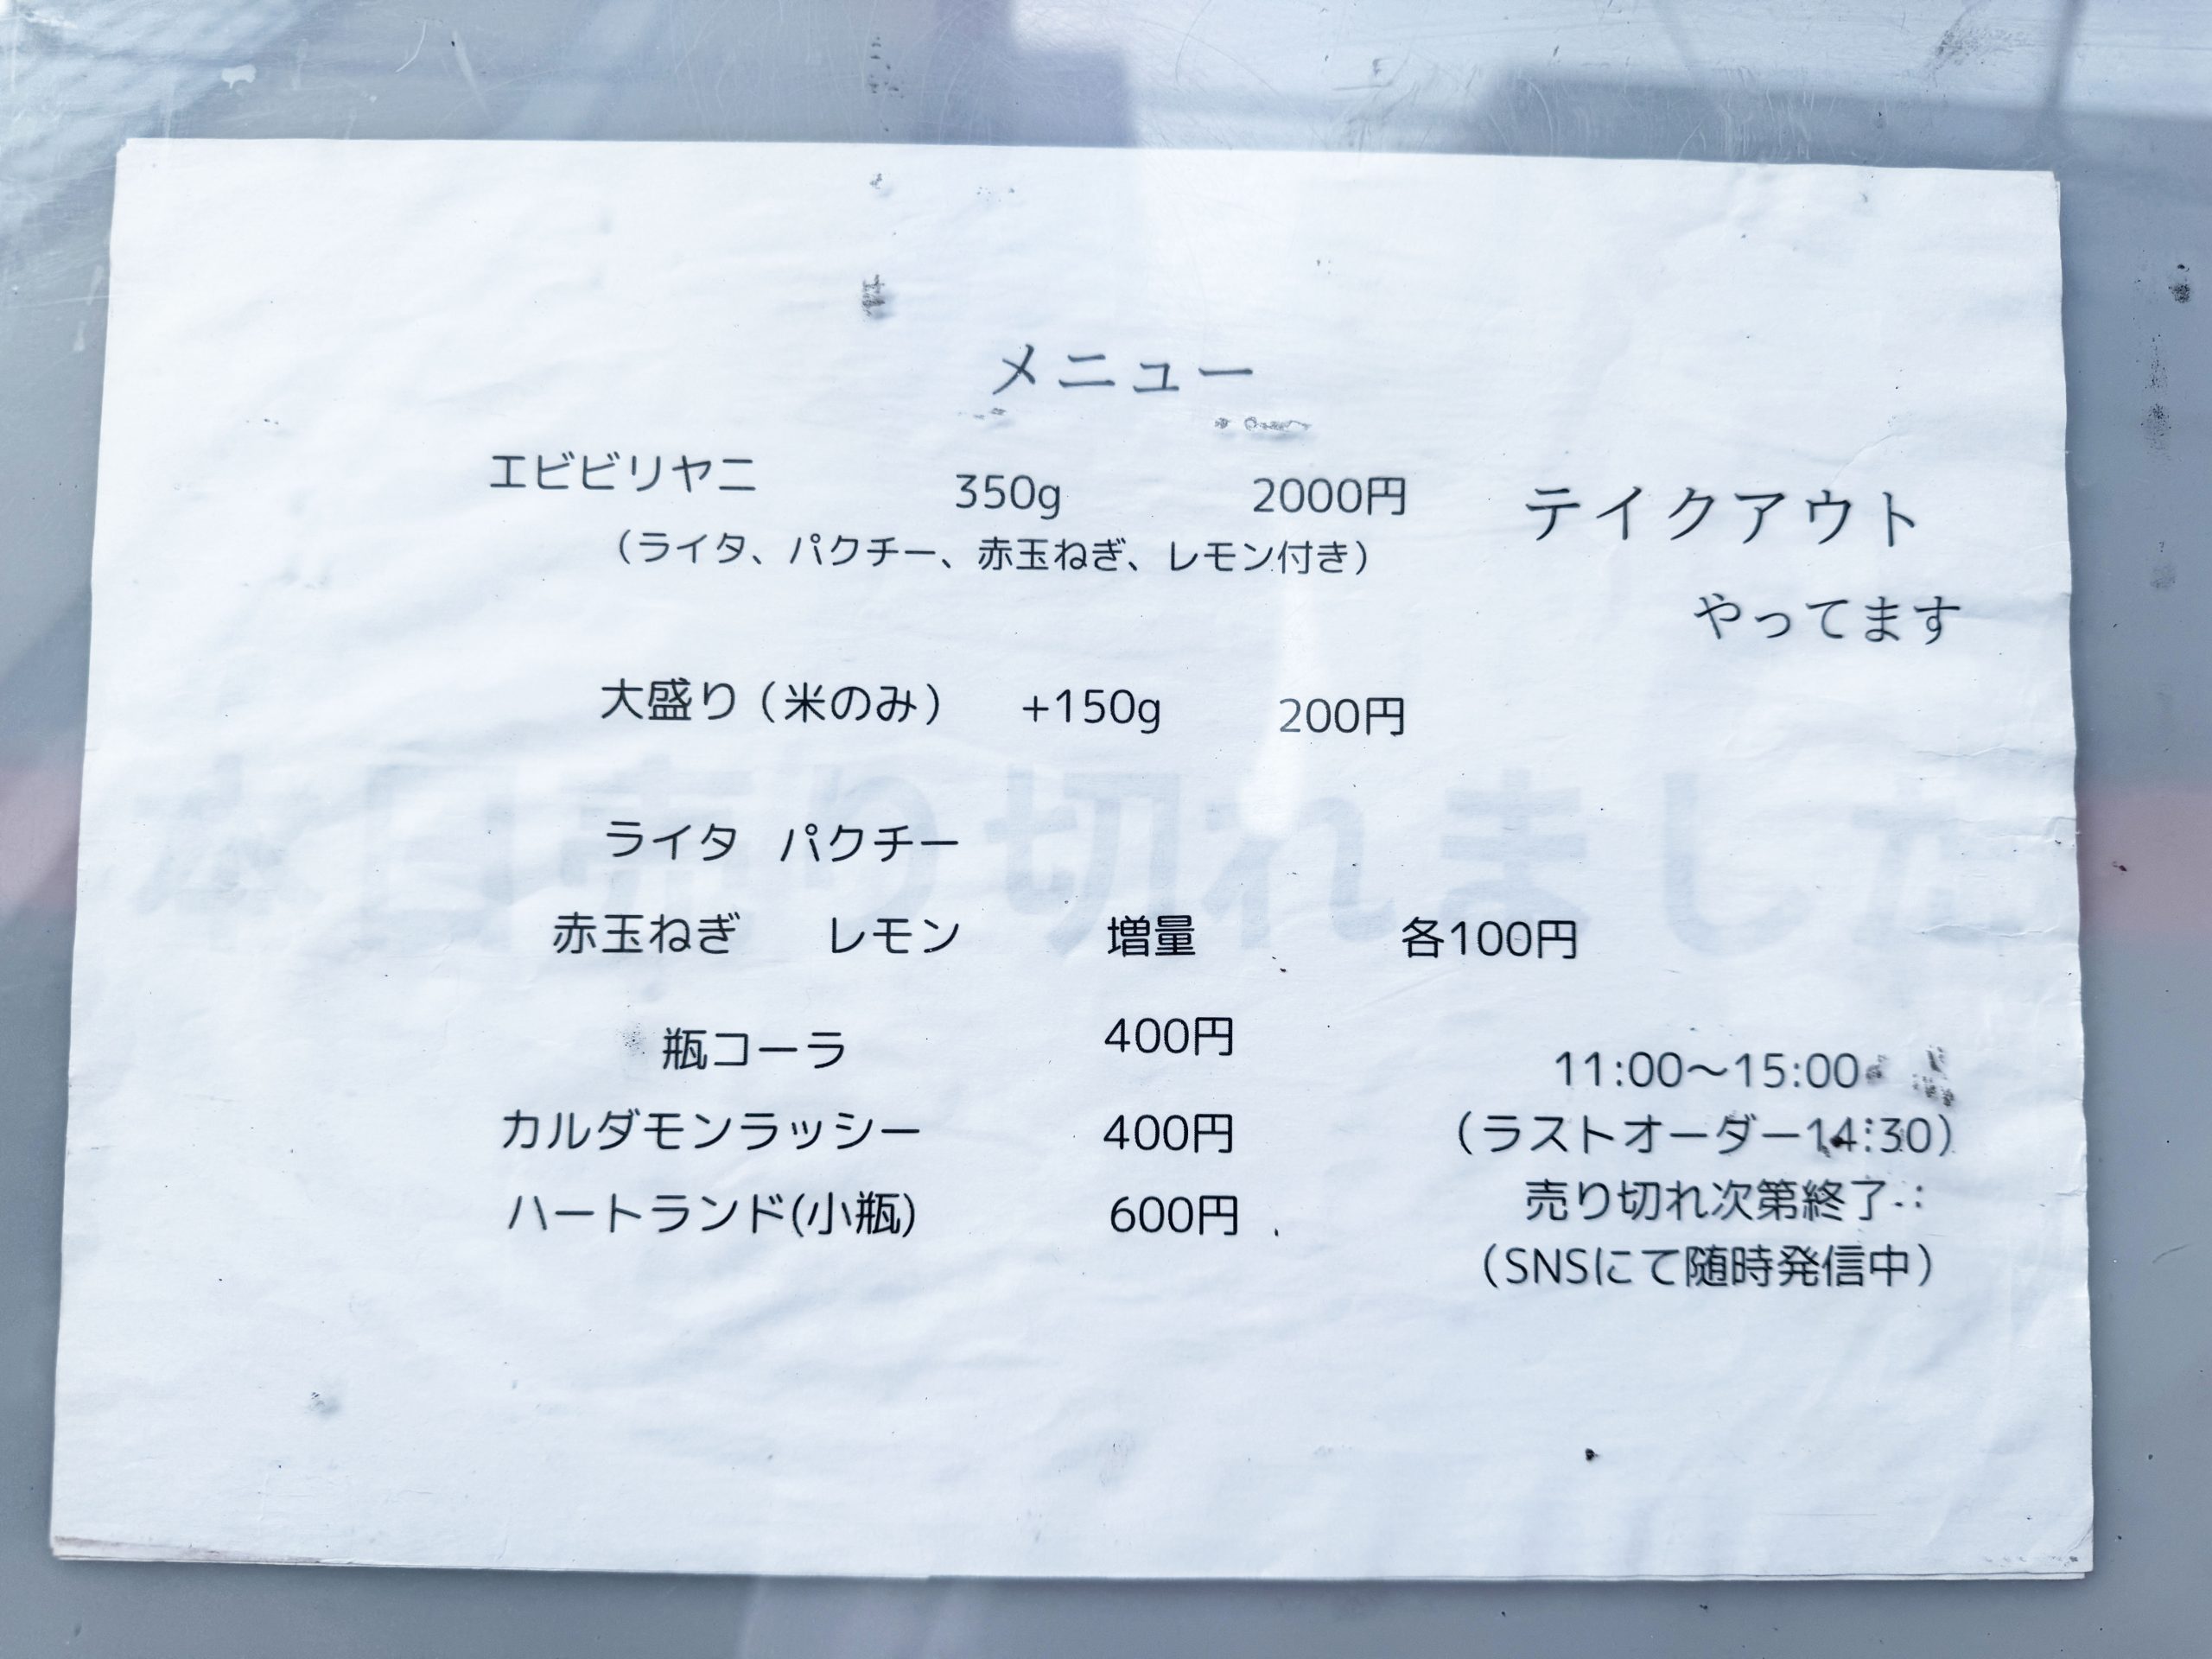 メニュー
エビビリヤニ 350g 2000円
（ライタ、パクチー、赤玉ねぎ、レモン付き）
テイクアウト
やってます
大盛り（米のみ） +150g 200円
本日売り切れました
ライタ パクチー
赤玉ねぎ レモン 増量 各100円
瓶コーラ 400円
カルダモンラッシー 400円
ハートランド(小瓶) 600円
11:00～15:00
（ラストオーダー14:30）
売り切れ次第終了
（SNSにて随時発信中）